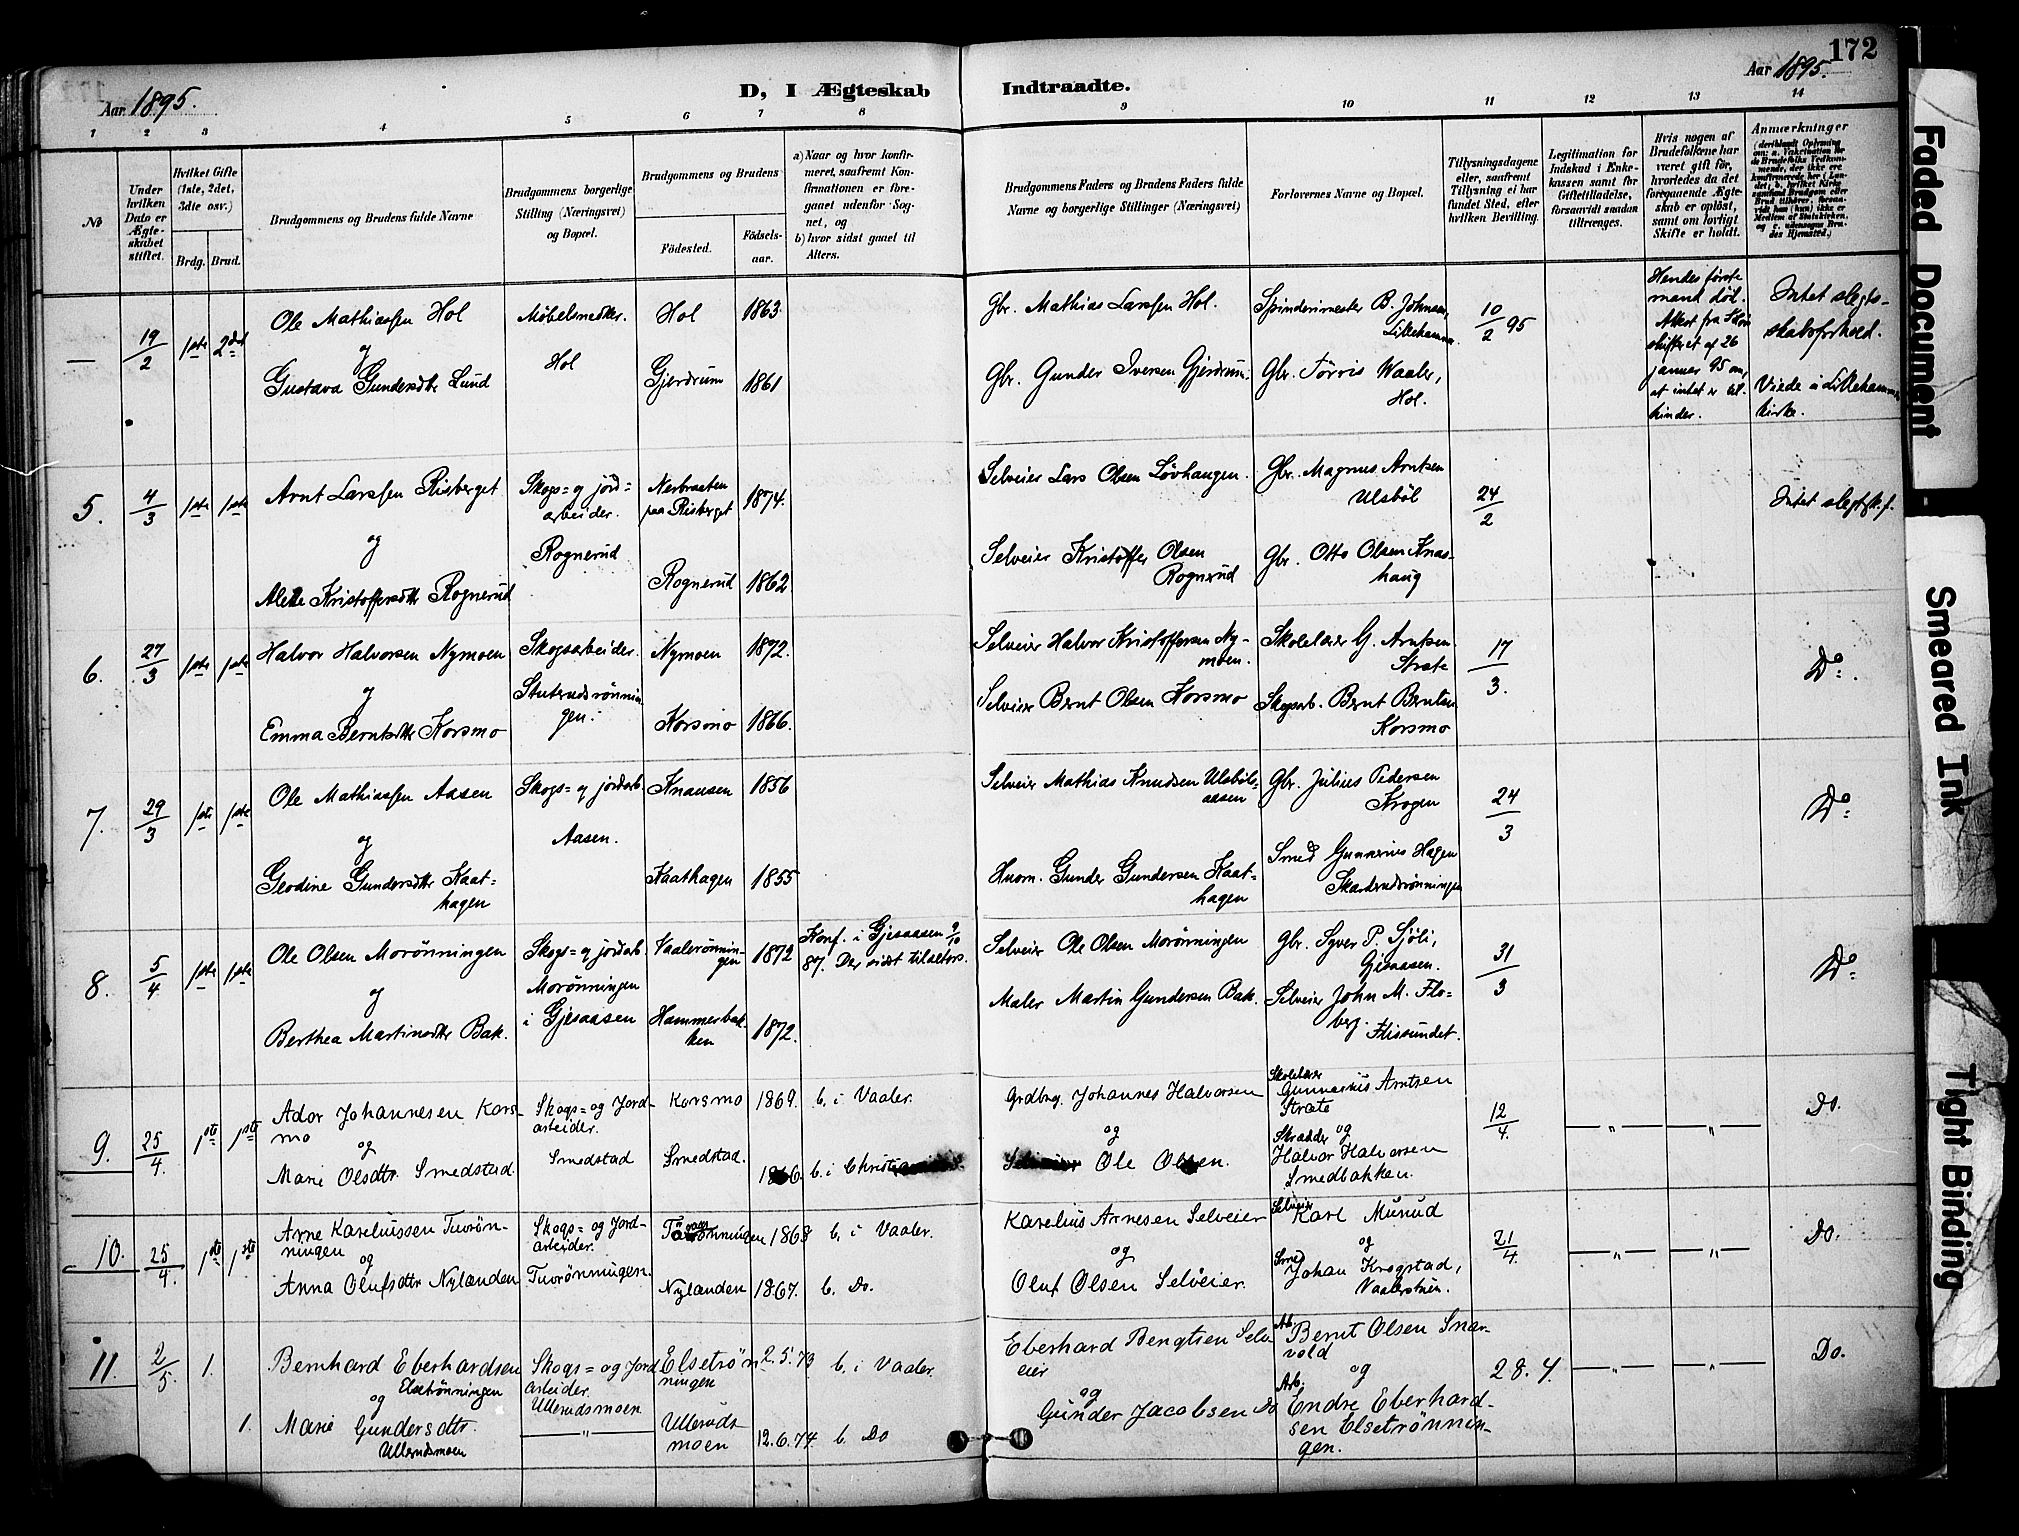 172
Aar 1895.
D, I Ægteskab
Indtraadte.
Aar 1895.
1 2 3 4 5 6 7 8 9 10 11 12 13 14
No
Under hvilken Dato er Ægteskabet stiftet.
Hvilket Gifte (1ste, 2det, 3dte osv.)
Brdg. Brud.
Brudgommens og Brudens fulde Navne
Brudgommens borgerlige Stilling (Næringsvei) og Bopæl.
Brudgommens og Brudens
Fødested.
Fødselsaar.
a) Naar og hvor konfirmeret, saafremt Konfirmationen er foregaaet udenfor Sognet, og
b) hvor sidst gaaet til Alters.
Brudgommens Faders og Brudens Faders fulde Navne og borgerlige Stillinger (Næringsvei)
Forlovernes Navne og Bopæl.
Tillysningsdagene eller, saafremt Tillysning ei har fundet Sted, efter hvilken Bevilling.
Legitimation for Indskud i Enkekassen samt for Giftetilladelse, forsaavidt saadan tiltrænges.
Hvis nogen af Brudefolkene har været gift før, hvorledes da det foregaaende Ægteskab er opløst, samt om lovligt Skifte er holdt.
Anmærkninger
— 19/2 1ste 2det
Ole Mathiassen Hol
og
Gustava Gundersdtr Lund
Møbelsnedker.
Hol
Hol 1863.
Gjerdrum 1861
Gbr. Mathias Larssen Hol.
Gbr. Gunder Iversen Gjerdrum.
Spinderimester B. Johnsen,
Lillehammer.
Gbr. Tørris Waaler,
Hol.
10/2 95
Hendes første
mand död.
Attest fra
skifteret af 26
januar 95 om,
at intet er til
hinder.
Intet slegt-
skabsforhold.
Viede i Lillehammer
kirke.
5. 4/3 1ste 1ste
Arnt Larssen Risberget
og
Alette Kristoffersdtr Rognerud
Skogs= og jord=
arbeider.
Rognerud
Nerbraaten
paa Risberget 1874.
Rognerud 1862
Selveier Lars Olsen Løvhaugen.
Selveier Kristoffer Olsen
Rognerud
Gbr. Magnus Arntsen
Ulsböl
Gbr. Otto Olsen Knas-
haug
24/2
Intet slegtsk.f.
6. 27/3 1ste 1ste
Halvor Halvorsen Nymoen
og
Emma Berntsdtr Korsmo
Skogsarbeider.
Stutrudsrönnin
gen.
Nymoen 1872.
Korsmo 1866.
Selveier Halvor Kristoffersen Ny-
moen.
Selveier Bernt Olsen Korsmo
Skolelærer G. Arntsen
Stræte
Skogsarb. Bernt Berntsen
Korsmo
17/3.
Do.
7. 29/3 1ste 1ste
Ole Mathiassen Aasen
og
Geodine Gundersdtr Kaat=
hagen
Skogs= og jordarb.
Aasen.
Knausen 1856
Kaathagen 1855
Selveier Mathias Knudsen Ulsböls-
aasen
Husm. Gunder Gundersen Kaat=
hagen
Gbr. Julius Pedersen
Krogen
Smed Gunnerius Hagen
Skarderudsrönningen
24/3
Do
8. 5/4 1ste 1ste
Ole Olsen Morönningen
og
Berthea Martinsdtr Bak.
Skogs= og jordarb.
Morönningen
i Gjesaasen
Vaalerönnin-
gen 1872
Hammerbak-
ken 1872.
Konf. i Gjesaasen 9/10
87. Der sidst tilalters.
Selveier Ole Olsen Morönningen
Maler Martin Gundersen Bak.
Gbr. Syver P. Sjöli,
Gjesaasen.
Selveier John M. Flo-
berg.
Flissundet.
31/3
Do
9. 25/4 1ste 1ste
Ador Johannesen Kors-
mo
og
Marie Olsdtr. Smedstad
Skogs= og Jord-
arbeider.
Smedstad
Korsmo 1869. b. i Vaaler.
Smedstad. 1866. b. i
Grdbrg. Johannes Halvorsen
og
Ole Olsen.
Skolelærer
Gunnerius Arntsen
Stræte
Skrædder og
Halvor Halvorsen
Smedbakken.
12/4.
— „ — — „ —
Do.
10. 25/4. 1ste 1ste
Arne Kareliussen Tuvrön-
ningen
og
Anna Olufsdtr Nylænden
Skogs= og Jord-
arbeider.
Tuvrönningen.
1868 b. i Vaaler.
Nylænden 1867. b. Do.
Karelius Arnesen Selveier
og
Oluf Olsen Selveier.
Selveier
Karl Murud
og
Smed
Johan Krogstad,
Vaalerstuen.
21/4.
— „ — — „ —
Do.
11. 2/5. 1.
Bernhard Eberhardsen
Elsetrönningen
og
1. Marie Gundersdtr.
Ullerudsmoen
Skogs= og Jord
arbeider.
Ullerudsmoen
— „ —
Elsetrön-
ningen 2.5.73 b. i Vaaler.
Ulleruds
moen 12.6.74. b. Do
Eberhard Bengtsen Selv-
eier
og
Gunder Jacobsen Do
Arb.
Bernt Olsen Snar-
vold
og
Arb.
Endre Eberhard-
sen Elsetrönnin-
gen.
28.4.
— „ — — „ —
Do.
Faded Document
Smeared Ink
Tight Binding